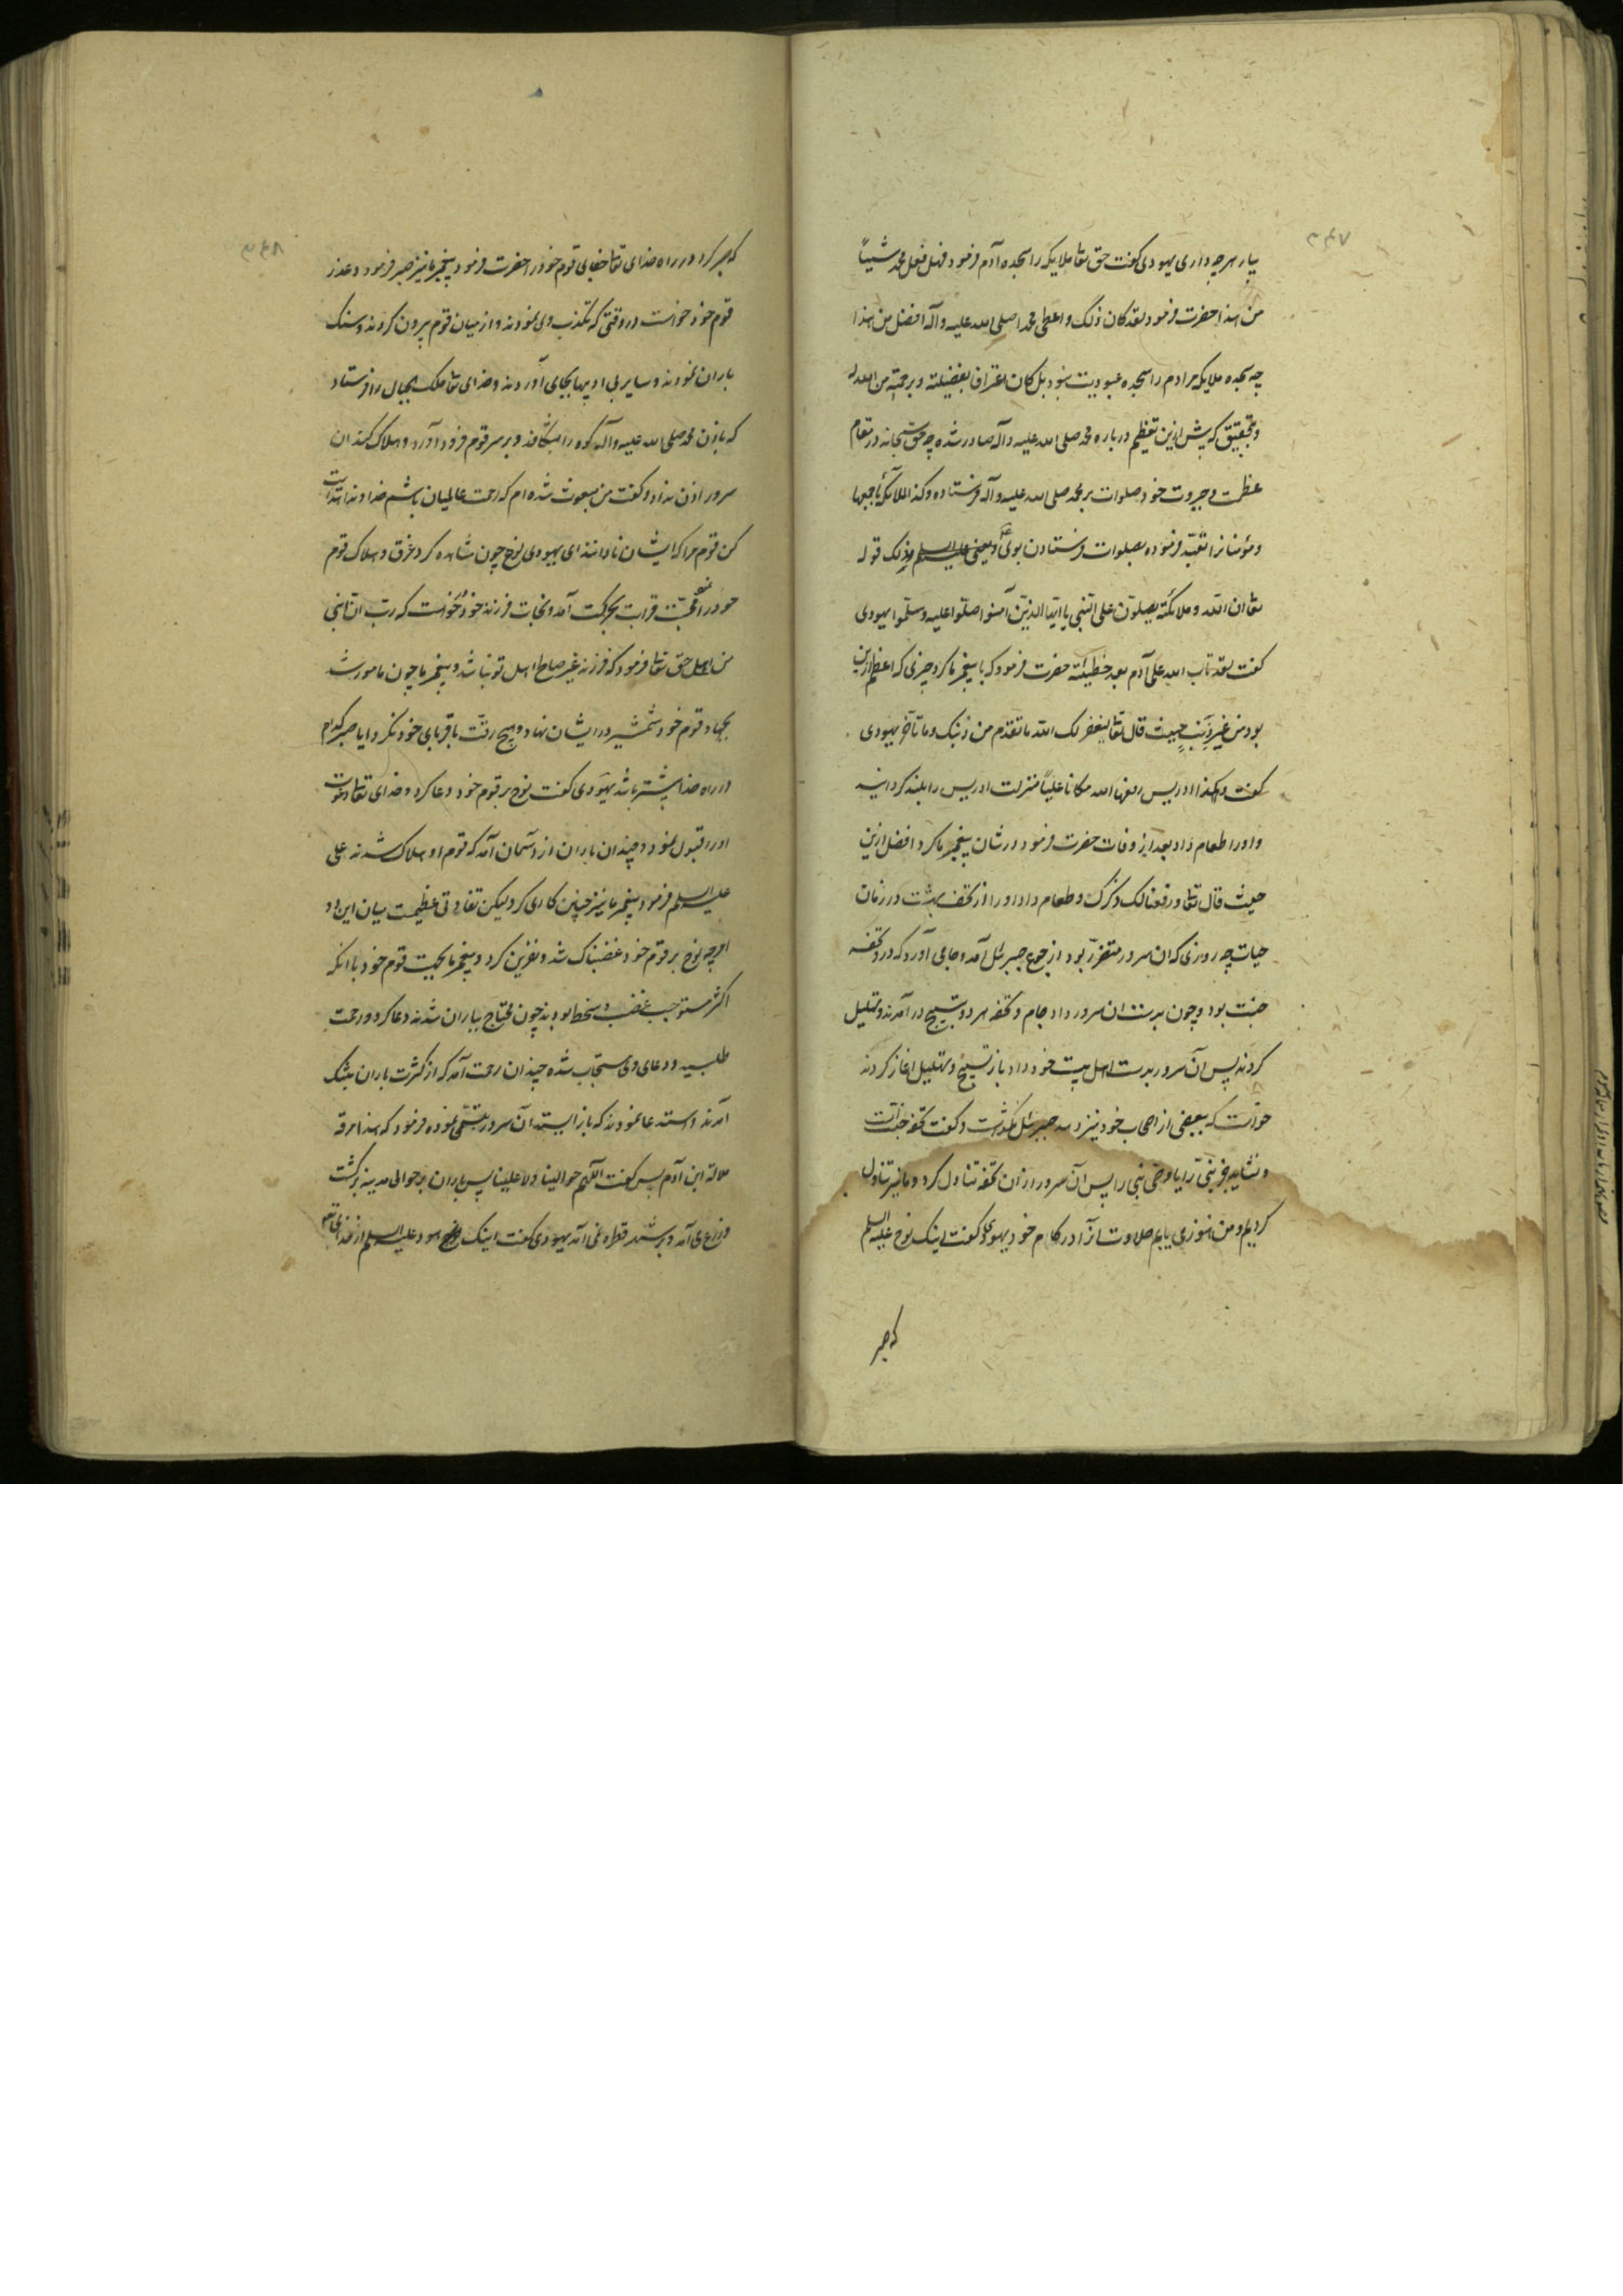 ۳۴۷
بیار هرچه داری یهودی گفت حق تعا ملایکه را سجده آدم فرمود فهل فعل محمد شیئاً
من هذا حضرت فرمود لقد کان ذلک واعطی محمدا صلی الله علیه وآله افضل من هذا
چه سجده ملایکه مر ادم را سجده عبودیت نبود بل کان اعتراف بفضیلته وبرحمة من الله له
وبتحقیق که بیش ازین تعظیم درباره محمد صلی الله علیه وآله صادر شده چه حق سبحانه در مقام
عظمت و جبروت خود صلوات بر محمد صلی الله علیه وآله فرستاده وکذا الملائکة باجمعها
ومؤمنانرا تعبد فرموده بصلوات فرستادن بوی ویعنی علیه السلم وذلک قوله
تعا ان الله وملائکته یصلون علی النبی یا ایها الذین آمنوا صلوا علیه وسلموا یهودی
گفت لقد تاب الله علی آدم بعد خطیئته حضرت فرمود که با پیغمبر ما کرد چیزی که اعظم ازین
بود من غیر ذنب حیث قال تعا لیغفر لک الله ما تقدم من ذنبک وما تأخر یهودی
گفت وهکذا ادریس رفعه الله مکانا علیا منزلت ادریس را بلند گردانید
و اورا طعام داد بعد از وفات حضرت فرمود در شان پیغمبر ما کرد افضل ازین
حیث قال تعا ورفعنا لک ذکرک وطعام داد اورا از تحف بهشت در زمان
حیات چه روزی که ان سرور متضرر بود از جوع جبرئل آمد وجامی آورد که درو تحفه
جنت بود وچون بدست ان سرور داد جام و تحفه هر دو بتسبیح در آمدند وتهلیل
کردند پس آن سرور بدست اهل بیت خود داد باز تسبیح وتهلیل اغاز کردند
خواست که ببعضی از اصحاب خود نیز دهد جبرئل نگذاشت وگفت تحفه جنت است
ونشاید جز نبی را یا وصی نبی را پس آن سرور از ان تحفه تناول کرد وما نیز تناول
کردیم ومن هنوز می یابم حلاوت انرا در کام خود یهودی گفت اینک نوح علیه السلم
که صبر
۳۴۸
که صبر کرد در راه خدای تعا جفای قوم خود را حضرت فرمود پیغمبر ما نیز صبر فرمود وعذر
قوم خود خواست در وقتی که تکذیب وی نمودند واز میان قوم بیرون کردند وسنک
باران نمودند وسایر بی ادبیها بجای آوردند وخدای تعا ملک الجبال را فرستاد
که باذن محمد صلی الله علیه وآله کوه را بشکافد وبر سر قوم فرود آورد وهلاک کند ان
سرور اذن نداد وگفت من مبعوث شده ام که رحمت عالمیان باشم خداوندا هدایت
کن قوم مرا که ایشان نادانند ای یهودی نوح چون مشاهده کرد غرق وهلاک قوم
خود را محبت قرابت بحرکت آمد ونجات فرزند خود خواست که رب ان ابنی
من اهلی حق تعا فرمود که فرزند غیر صالح اهل تو نباشد وپیغمبر ما چون مامور شد
بجهاد قوم خود شمشیر در ایشان نهاد وهیچ رقت باقربای خود نکرد ایا صبر کدام
در راه خدا بیشتر باشد یهودی گفت نوح بر قوم خود دعا کرد وخدای تعا دعوت
اورا قبول نمود وچندان باران از آسمان آمد که قوم او هلاک شدند علی
علیه السلم فرمود پیغمبر ما نیز چنین کاری کرد لیکن تفاوتی عظیمست میان این دو
امر چه نوح بر قوم خود غضبناک شد ونفرین کرد وپیغمبر ما بجهت قوم خود با انکه
اکثر مستوجب غضب وسخط بودند چون محتاج بباران شدند دعا کرد ورحمت
طلبید ودعای وی مستجاب شده چندان رحمت آمد که از کثرت باران بتنک
آمدند واستدعا نمودند که باز ایستد آن سرور تبسمی نموده فرمود که هذا سرعة
ملالة ابن آدم پس گفت اللهم حوالینا ولا علینا پس باران بر حوالی مدینه برگشت
وزرع می آمد وبر شهر قطره نمی آمد یهودی گفت اینک هود علیه السلم از خدای تعا